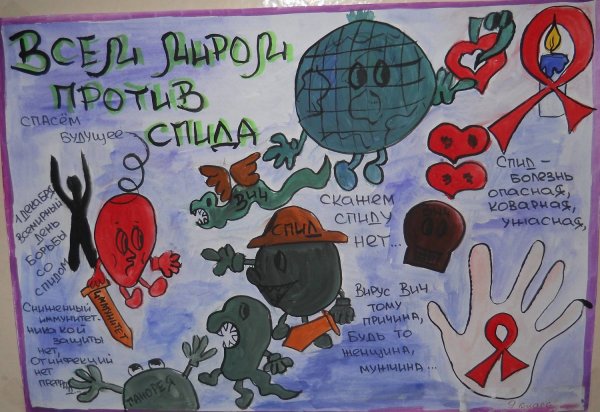 Всем миром
против
СПИДа
Спасём
будущее
1 декабря
всемирный
день
борьбы
со
СПИДом
ВИЧ
СПИД
Скажем
СПИДу
нет...
СПИД –
болезнь
опасная,
коварная,
ужасная,
Вирус ВИЧ
тому
причина,
будь то
женщина,
мужчина...
Сниженный
иммунитет-
никакой
защиты
нет,
От инфекций
нет
иммунитет